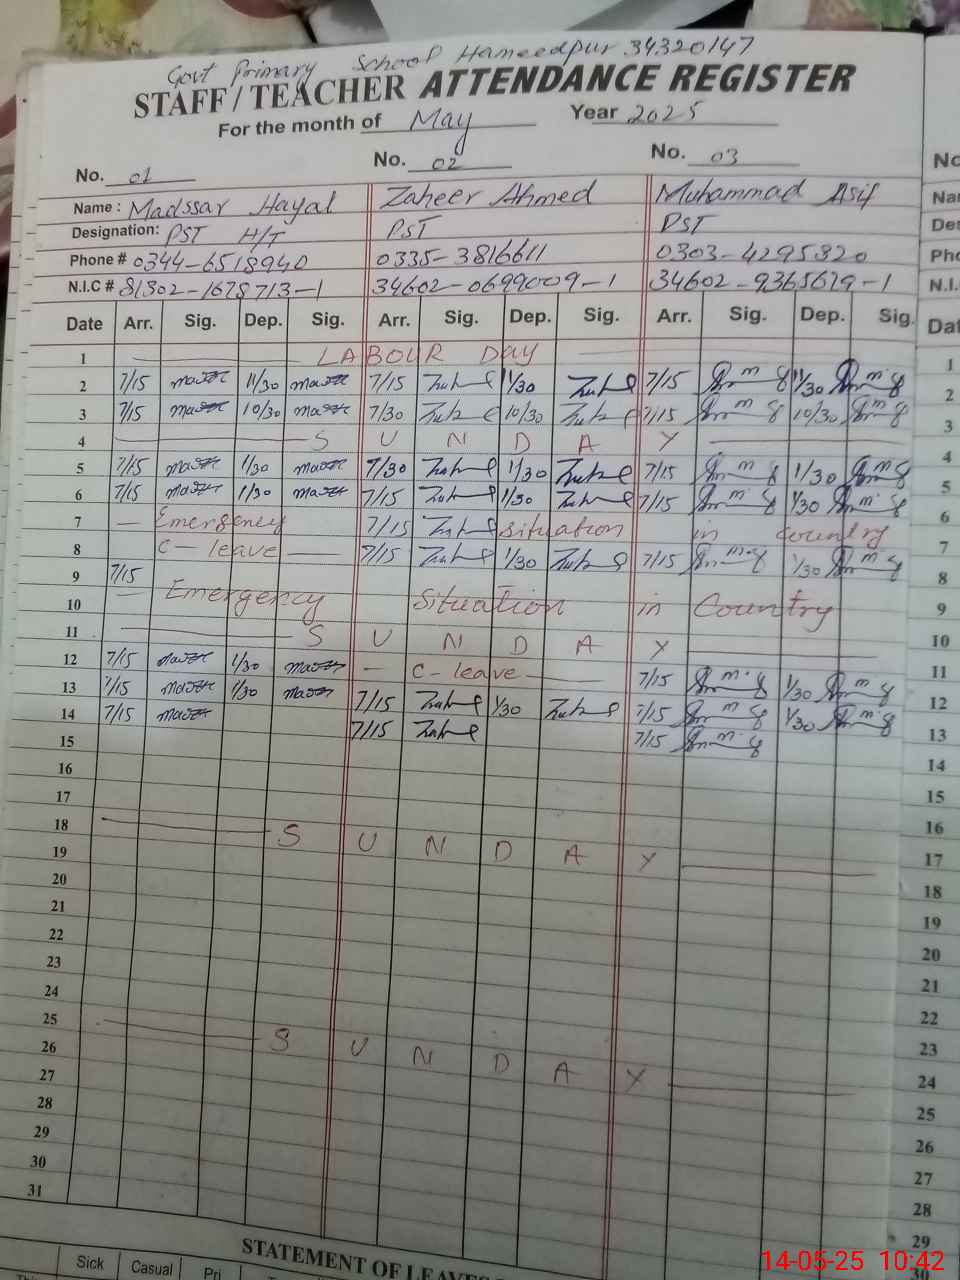 Govt Primary School Hameedpur 34320147
STAFF / TEACHER ATTENDANCE REGISTER
For the month of May Year 2025
No. 01 No. 02 No. 03 No
Name : Madssar Hayal Zaheer Ahmed Muhammad Asif Nar
Designation: PST H/T PST PST Des
Phone # 0344-6518940 0335-3816611 0303-4295320 Pho
N.I.C # 81302-1678713-1 34602-0699009-1 34602-9365679-1 N.I.
Date Arr. Sig. Dep. Sig. Arr. Sig. Dep. Sig. Arr. Sig. Dep. Sig. Dat
1 LABOUR Day 1
2 7/15 11/30 7/15 11/30 7/15 11/30 2
3 7/15 10/30 7/30 10/30 7/15 10/30 3
4 S U N D A Y 4
5 7/15 1/30 7/30 1/30 7/15 1/30 5
6 7/15 1/30 7/15 1/30 7/15 1/30 6
7 Emergency 7/15 situation in country 7
8 C-leave 7/15 1/30 7/15 1/30 8
9 7/15 9
10 Emergency Situation in Country 10
11 S U N D A Y 11
12 7/15 1/30 C-leave 7/15 1/30 12
13 7/15 1/30 7/15 1/30 7/15 1/30 13
14 7/15 7/15 7/15 14
15 15
16 16
17 17
18 S U N D A Y 18
19 19
20 20
21 21
22 22
23 23
24 24
25 S U N D A Y 25
26 26
27 27
28 28
29 29
30 30
31
STATEMENT OF LEAVES
Sick Casual Pri
14-05-25 10:42